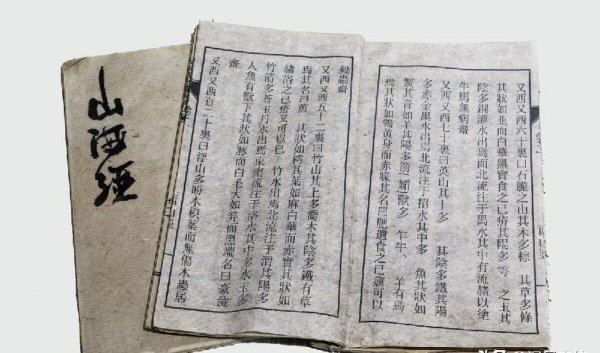 又西又西六十裏曰石脆之山其木多棕 其草多條
其狀如韭而白華黑實食之已疥其陽多雩 之玉其
陰多銅灌水出焉而北流注于禺水其中有流赭以塗
牛馬無病齋
又西又西七十裏曰英山其上多 其陰多鐵其陽
多赤金禺水出焉北流注于招水其中多 魚其狀如
鱉其音如羊其陽多箭 媚獸多 乍牛、 羊有鳥
焉其狀如鶉黃身而赤喙其名曰肥遺食之已癘可以
殺蟲齋
又西又西五十二裏曰竹山其上多喬木其陰多鐵有草
焉其名曰黃 其狀如樗其葉如麻白華而赤實其狀如
赭浴之已疥又可以已 竹水出焉北流注于渭其陽多
竹箭多蒼玉丹水出焉東南流注于洛水其中多水玉多
人魚有獸下其狀如豚而白毛大如笄而黑端名曰豪彘
齋
又西又西百二十裏曰浮山多盼木枳葉而無傷木蟲居
山海經